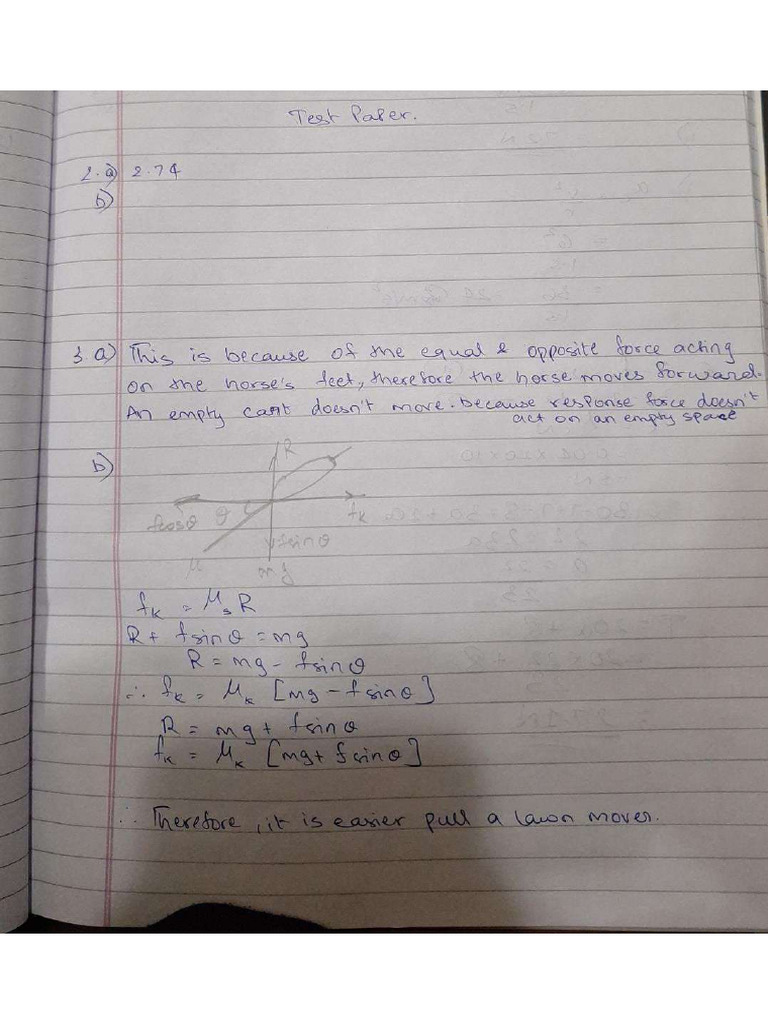 Test Paper.
1.a) 2.74
b)
3.a) This is because of the equal & opposite force acting
on the horse's feet, therefore the horse moves forward.
An empty cart doesn't move. because response force doesn't
act on an empty space
b)
R
fcosθ θ fk
fsinθ
μ mg
fk = μs R
R + fsinθ = mg
R = mg - fsinθ
∴ fk = μk [mg - fsinθ]
R = mg + fsinθ
fk = μk [mg + fsinθ]
∴ Therefore, it is easier pull a lawn mover.